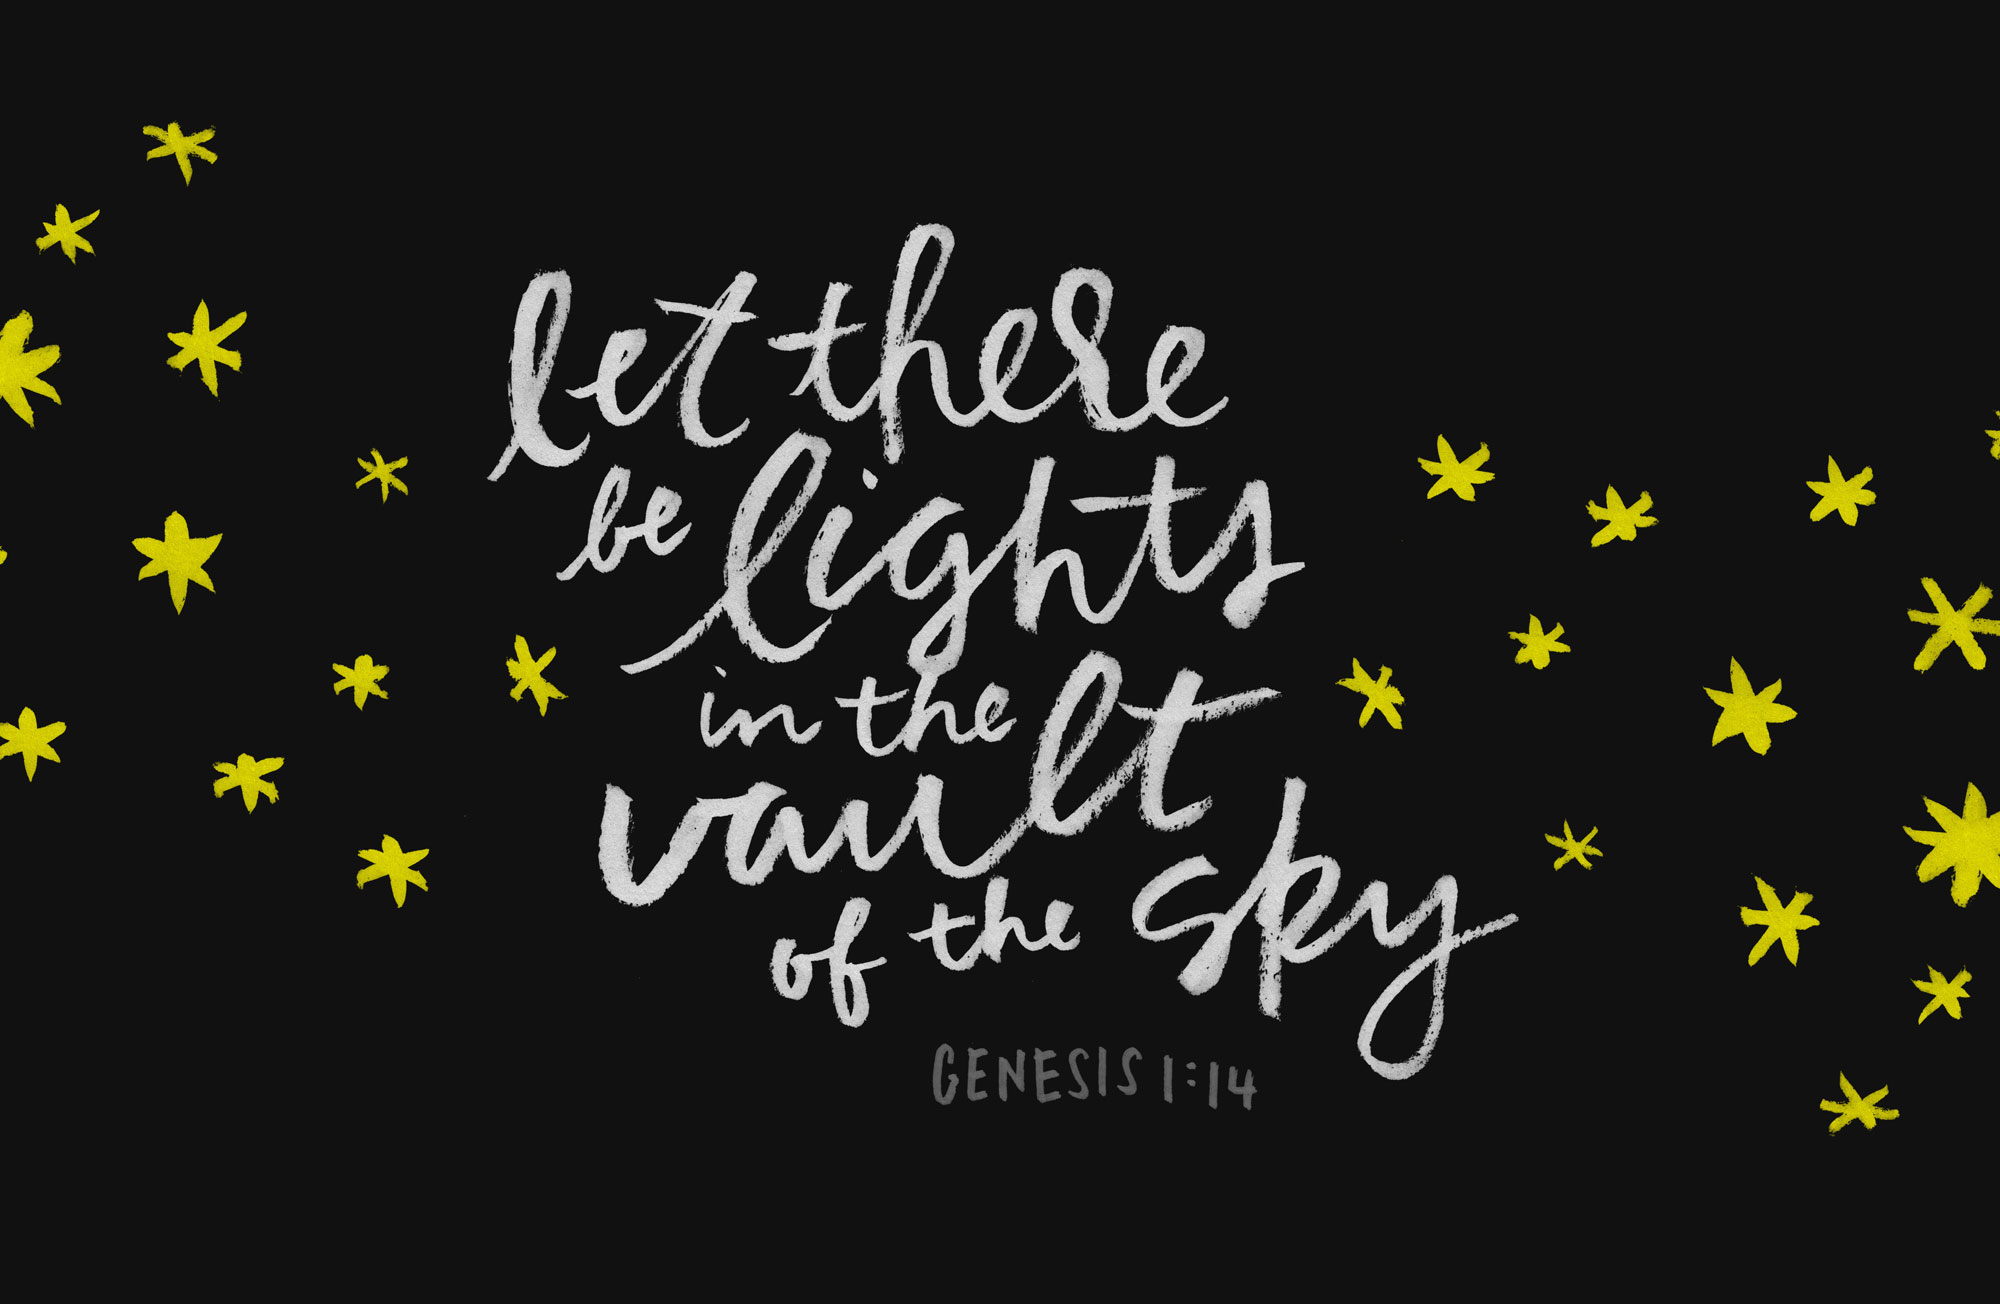 let there
be lights
in the
vault
of the sky
GENESIS 1:14